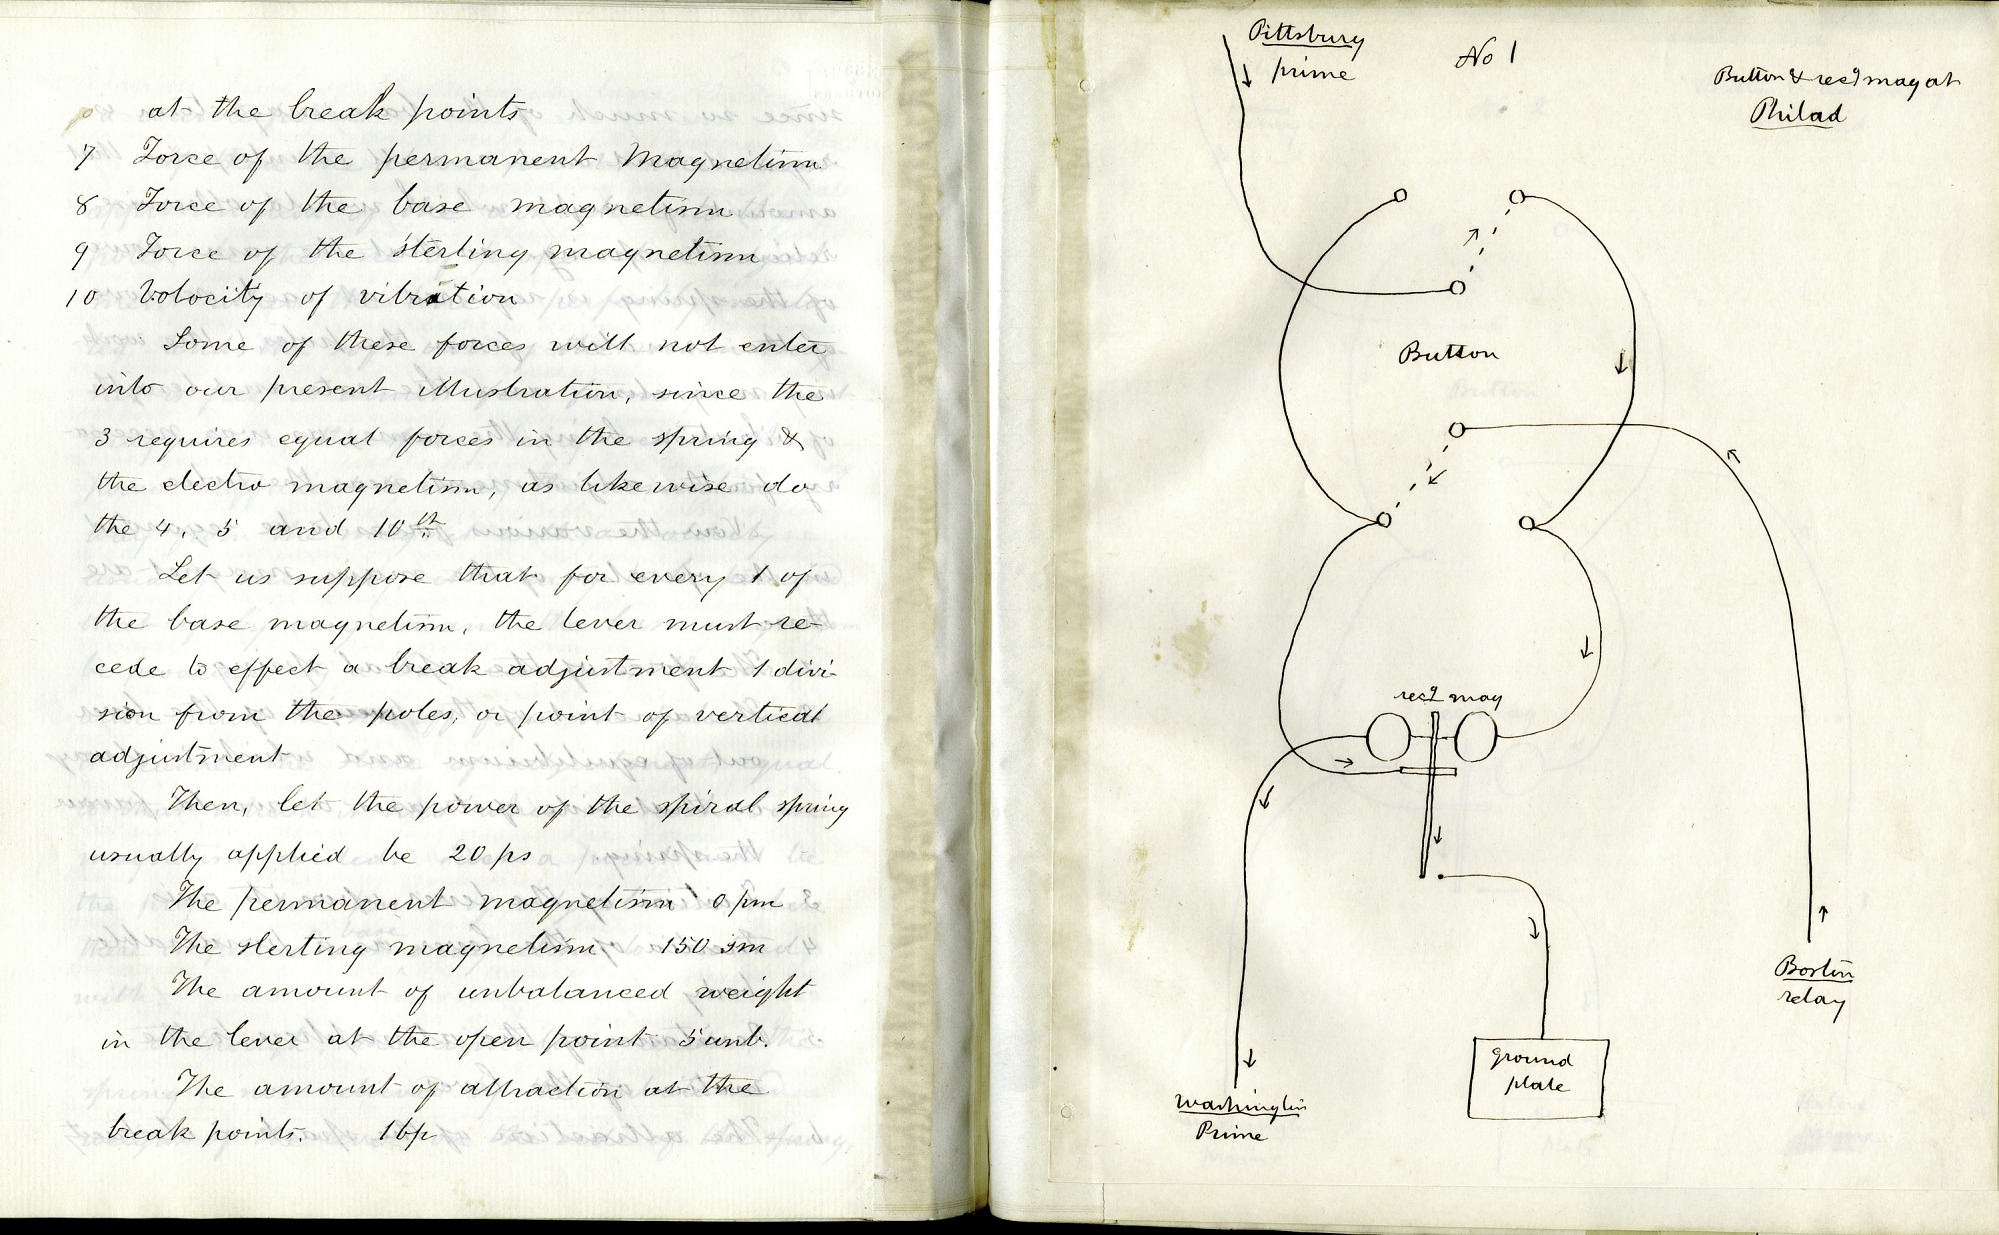 at the break points
7 Force of the permanent Magnetism
8 Force of the base magnetism
9 Force of the sterling magnetism
10 Volocity of vibration
Some of these forces will not enter
into our present illustration, since the
3 requires equal forces in the spring &
the electro magnetism, as likewise do
the 4, 5 and 10th
Let us suppose that for every 1 of
the base magnetism, the lever must re-
cede to effect a break adjustment 1 divi-
sion from the poles, or point of vertical
adjustment
Then, let the power of the spiral spring
usually applied be 20 ps
The permanent magnetism 0 pm
The sterting magnetism 150 sm
The amount of unbalanced weight
in the lever at the open point 5 unb.
The amount of attraction at the
break points. 1 bp
Pittsburg
prime
No 1
Button & recg mag at
Philad
Button
recg mag
Boston
relay
ground
plate
Washington
Prime